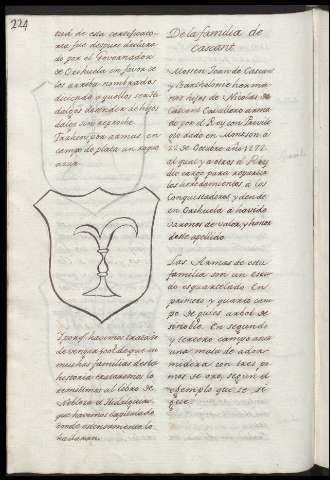 224
tud de esta certificato-
ria fue despues declara
do por el Governador
de Orihuela en favor de
los arriba nombrados
diciendo aquellos ser hi
dalgos descender de hijos
dalgo sin reproche.
Trahen por armas en
campo de plata un
azur
Y porq. havemos tratado
de
muchas familias de esta
historia trataremos lo
remitimos al libro de
Nobleza e Hidalguia
que havemos
donde
hallaran.
De la familia de
Cascant.
Mossen Juan de Cascant
y Bartholome herma
nos hijos de Nicolas de
Cascant Cavallero arma
do por el Rey con Privile
gio dado en Monzon à
22 de Octubre año
al qual y a otros el Rey
dio cargo para repartir
los heredamientos à los
Conquistadores y dende
en Orihuela à havido
varones de valor, y honra
deste apellido.
Las Armas de esta
familia son un escu
do esquartelado En
primero y quarto cam
po de gules arbol de
sinoble. En segundo
y tercero campo azur
una mata de ador
midera con tres pi
nas de oro, segun el
exemplo que se si
gue.